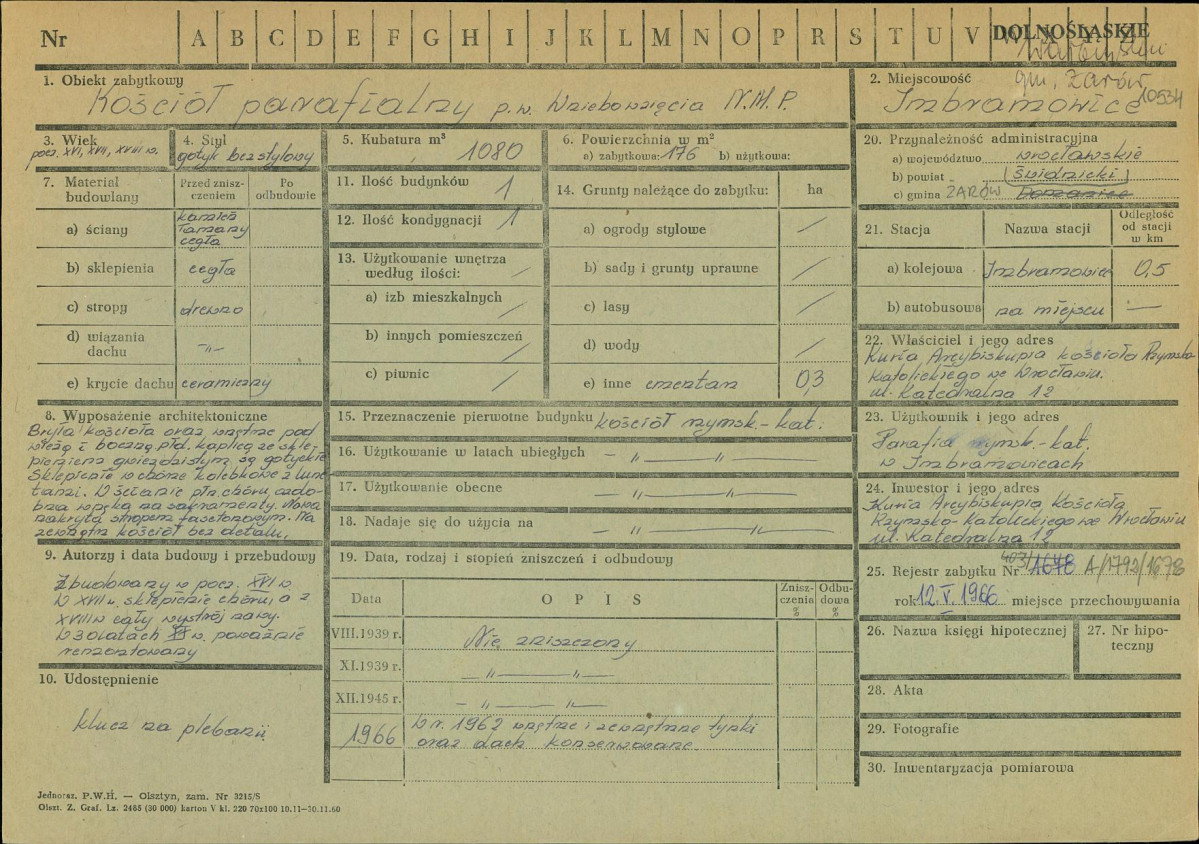 Nr A B C D E F G H I J K L M N O P R S T U V W X Y Z
DOLNOŚLĄSKIE
1. Obiekt zabytkowy
Kościół parafialny p.w. Wniebowzięcia N.M.P.
2. Miejscowość
gm. Żarów
Imbramowice 10534
3. Wiek
pocz. XVI, XVII, XVIII w.
4. Styl
gotyk bezstylowy
5. Kubatura m³
1080
6. Powierzchnia w m²
a) zabytkowa: 176 b) użytkowa:
20. Przynależność administracyjna
a) województwo wrocławskie
b) powiat (świdnicki)
c) gmina ŻARÓW Domanice
7. Materiał budowlany
Przed zniszczeniem
Po odbudowie
a) ściany kamień łamany cegła
b) sklepienia cegła
c) stropy drewno
d) wiązania dachu —„—
e) krycie dachu ceramiczny
11. Ilość budynków 1
12. Ilość kondygnacji 1
13. Użytkowanie wnętrza według ilości: /
a) izb mieszkalnych /
b) innych pomieszczeń /
c) piwnic /
14. Grunty należące do zabytku: ha
a) ogrody stylowe /
b) sady i grunty uprawne /
c) lasy /
d) wody /
e) inne cmentarz 0,3
21. Stacja
Nazwa stacji
Odległość od stacji w km
a) kolejowa Imbramowice 0,5
b) autobusowa na miejscu —
22. Właściciel i jego adres
Kuria Arcybiskupia kościoła Rzymsko-
Katolickiego we Wrocławiu.
ul. Katedralna 12
8. Wyposażenie architektoniczne
Bryła kościoła oraz wnętrze pod
wieżą i boczną płd. kaplicą ze skle-
pieniem gwieździstym są gotyckie
Sklepienie w chórze kolebkowe z lune-
tami. W ścianie płn. chóru ozdo-
bna wnęka na sakramenty. Nawa
nakryta stropem fasetonowym. Na
zewnątrz kościół bez detalu.
15. Przeznaczenie pierwotne budynku kościół rzymsk.-kat.
16. Użytkowanie w latach ubiegłych — „ — „ —
17. Użytkowanie obecne — „ — „ —
18. Nadaje się do użycia na — „ — „ —
23. Użytkownik i jego adres
Parafia rzymsk.-kat.
w Imbramowicach
24. Inwestor i jego adres
Kuria Arcybiskupia Kościoła
Rzymsko-Katolickiego we Wrocławiu
ul. Katedralna 12
9. Autorzy i data budowy i przebudowy
Zbudowany w pocz. XVI w
W XVII w. sklepienie chóru, a z
XVIII w cały wystrój nawy.
W 30 latach XX w. poważnie
remontowany
10. Udostępnienie
klucz na plebanii
19. Data, rodzaj i stopień zniszczeń i odbudowy
Data
OPIS
Zniszczenia %
Odbudowa %
VIII.1939 r. Nie zniszczony
XI.1939 r. — „ — „ —
XII.1945 r. — „ — „ —
1966 W r. 1962 wnętrze i zewnętrzne tynki
oraz dach konserwowane
25. Rejestr zabytku Nr 1678 A/1792/1678
rok 12.V.1966 miejsce przechowywania
26. Nazwa księgi hipotecznej
27. Nr hipoteczny
28. Akta
29. Fotografie
30. Inwentaryzacja pomiarowa
Jednoraz. P.W.H. — Olsztyn, zam. Nr 3215/S
Olszt. Z. Graf. Lz. 2485 (30 000) karton V kl. 220 70x100 10.11—30.11.60